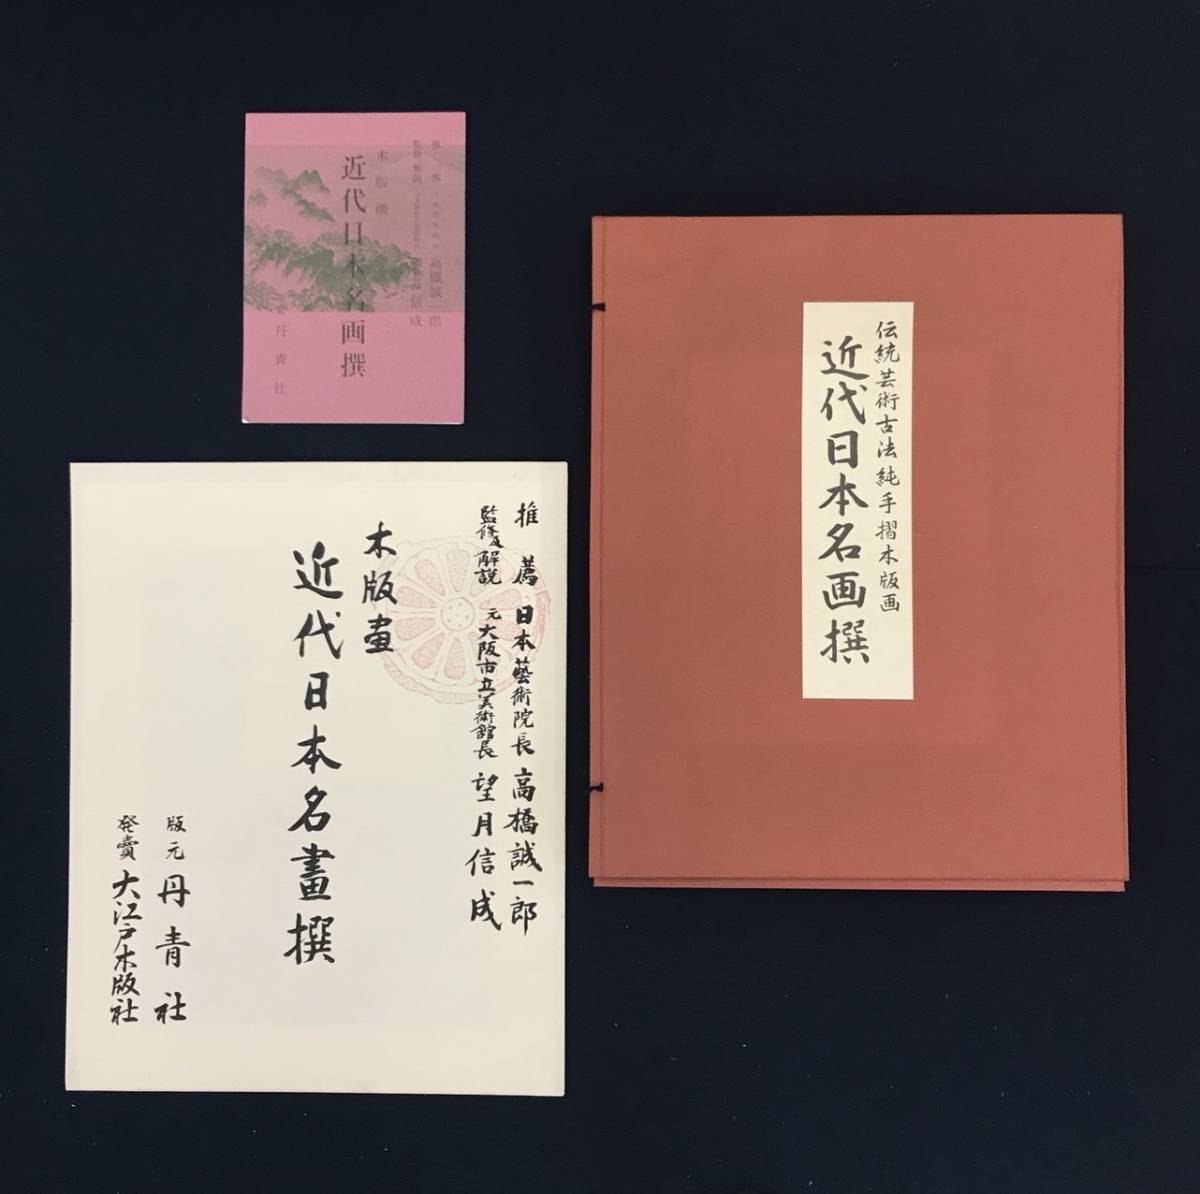 推薦 日本藝術院長 高橋誠一郎
監修及解説 元大阪市立美術館長 望月信成
木版画
近代日本名画撰
丹青社
伝統芸術古法純手摺木版画
近代日本名画撰
推薦 日本藝術院長 高橋誠一郎
監修及解説 元大阪市立美術館長 望月信成
木版畫
近代日本名畫撰
版元 丹青社
発賣 大江戸木版社